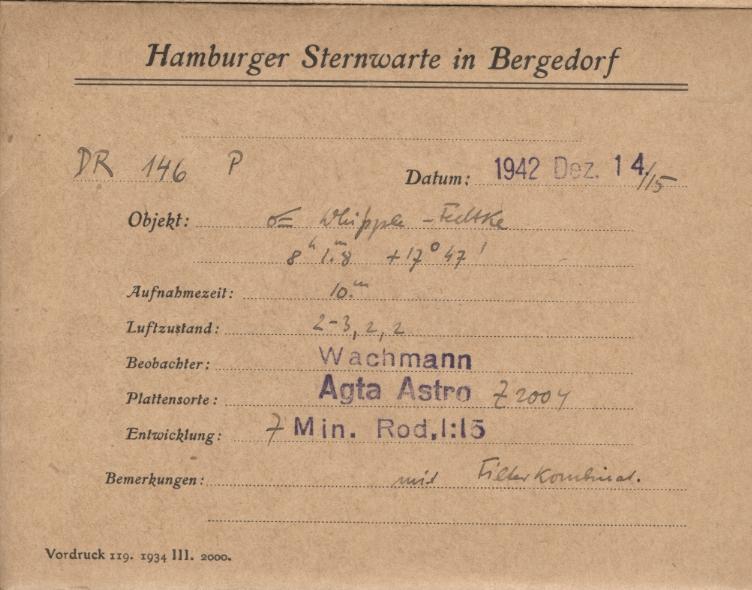 Hamburger Sternwarte in Bergedorf
DR 146 P
Datum: 1942 Dez. 14/15
Objekt: ☄ Whipple-Fedtke
8ʰ 1ᵐ.8 +17° 47'
Aufnahmezeit: 10ᵐ
Luftzustand: 2-3, 2, 2
Beobachter: Wachmann
Plattensorte: Agfa Astro Z 2004
Entwicklung: 7 Min. Rod, 1:15
Bemerkungen: mit Filterkombinat.
Vordruck 119. 1934 III. 2000.